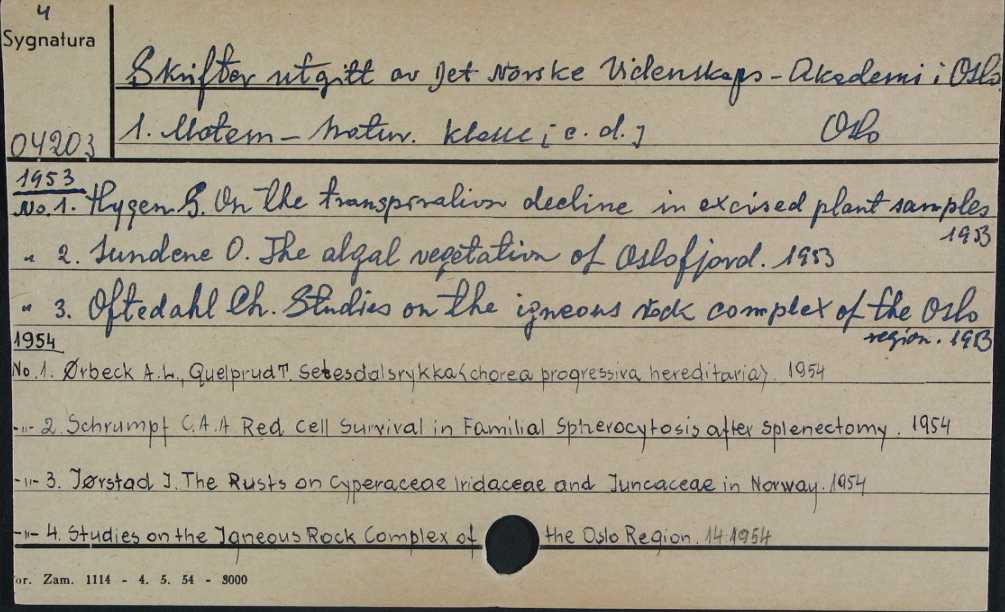 4
Sygnatura
04203
Skrifter utgitt av Det Norske Videnskaps-Akademi i Oslo
1. Matem-natur. klasse [c. d.] Oslo
1953
No. 1. Hygen G. On the transpiration decline in excised plant samples
1953
" 2. Sundene O. The algal vegetation of Oslofjord. 1953
" 3. Oftedahl Ch. Studies on the igneous rock complex of the Oslo
region. 1953
1954
No. 1. Ørbeck A.L., Quelprud T. Setesdalsrykka <chorea progressiva hereditaria>. 1954
-"- 2. Schrumpf C.A.A Red cell Survival in Familial Spherocytosis after splenectomy. 1954
-"- 3. Jørstad I. The Rusts on Cyperaceae Iridaceae and Juncaceae in Norway. 1954
-"- 4. Studies on the Igneous Rock Complex of the Oslo Region. 14 1954
or. Zam. 1114 - 4. 5. 54 - 3000